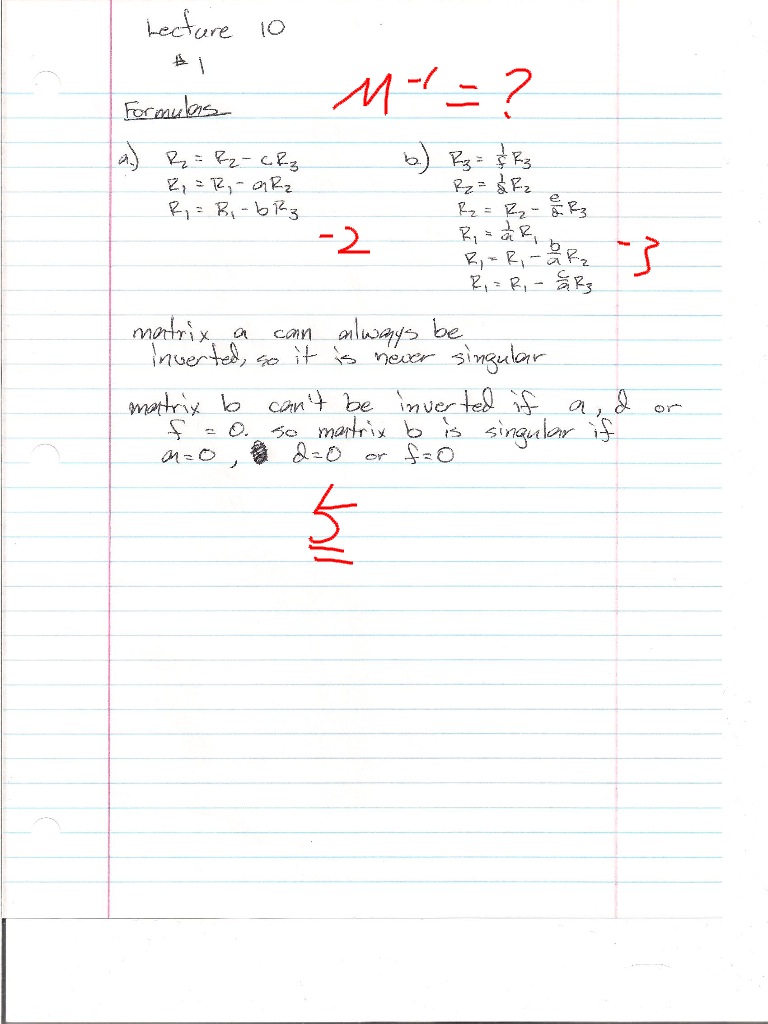 Lecture 10
# 1
M⁻¹ = ?
Formulas
a.) R₂ = R₂ - cR₃
R₁ = R₁ - aR₂
R₁ = R₁ - bR₃
-2
b.) R₃ = 1/f R₃
R₂ = 1/d R₂
R₂ = R₂ - e/d R₃
R₁ = 1/a R₁
R₁ = R₁ - b/a R₂
R₁ = R₁ - c/a R₃
-3
matrix a can always be
inverted, so it is never singular
matrix b can't be inverted if a, d or
f = 0. so matrix b is singular if
a=0, d=0 or f=0
5